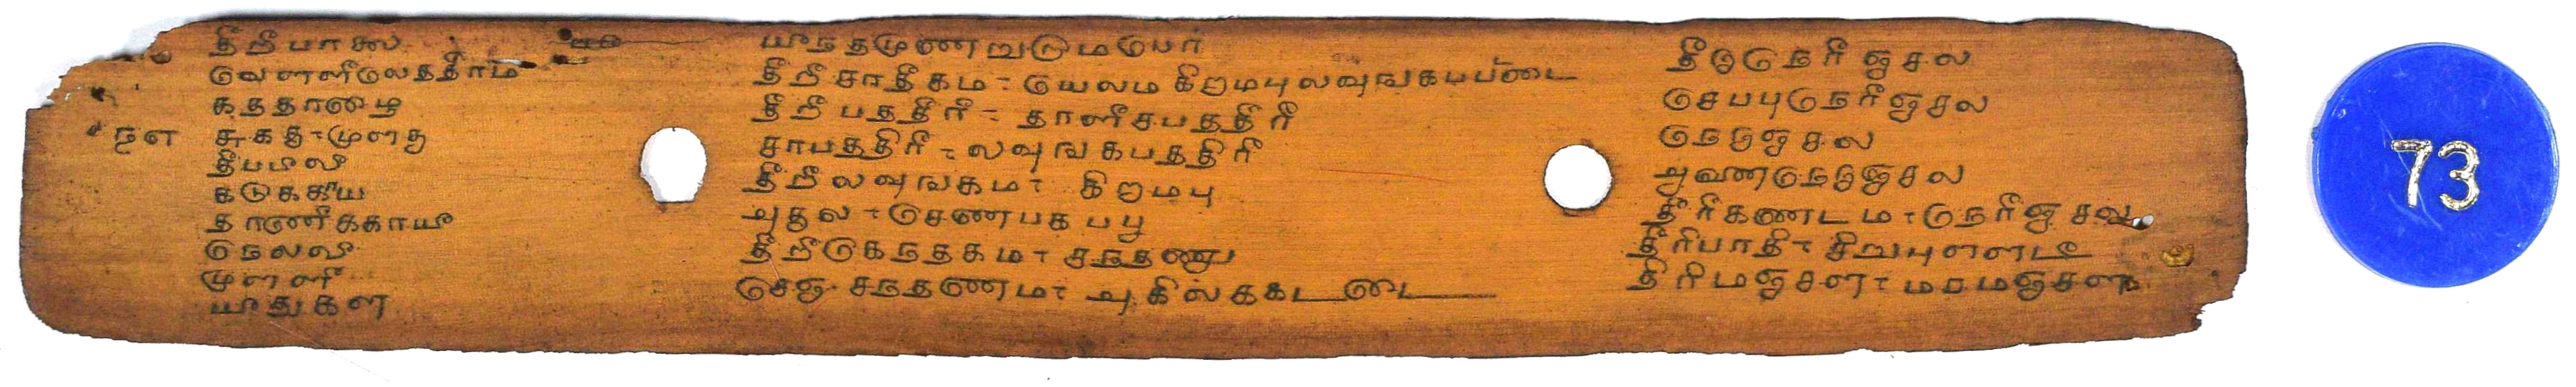 திறீபாலை
வெளளிலெததிரம
கததாழை
௩௭ சுகது-முளது
திபபிலி
கடுககிய
தாணிககாய
நெலலி
முளளி
யிதுகள
யிநதமுணறுமபேர
திறீசாதிகம- யேலம கிறமபு லவுஙகபபடடை
திறீபததிரி- தாளிசபததிரி
சாபததிரி- லவுஙகபததிரி
திறீலவுஙகம- கிறமபு
அதல- செணபகபபூ
திறீகெநதகம- சநதணமு
செஞசநதணம- அகிலககடடை
திருநெரிஞசல
செபபுநெரிஞசல
நெருஞசல
ஆவணநெருஞசல
திரிகணடம- நெரிஞசல
திரிபாதி- சிறுபுளளடி
திரிமஞசள- மரமஞசள
73